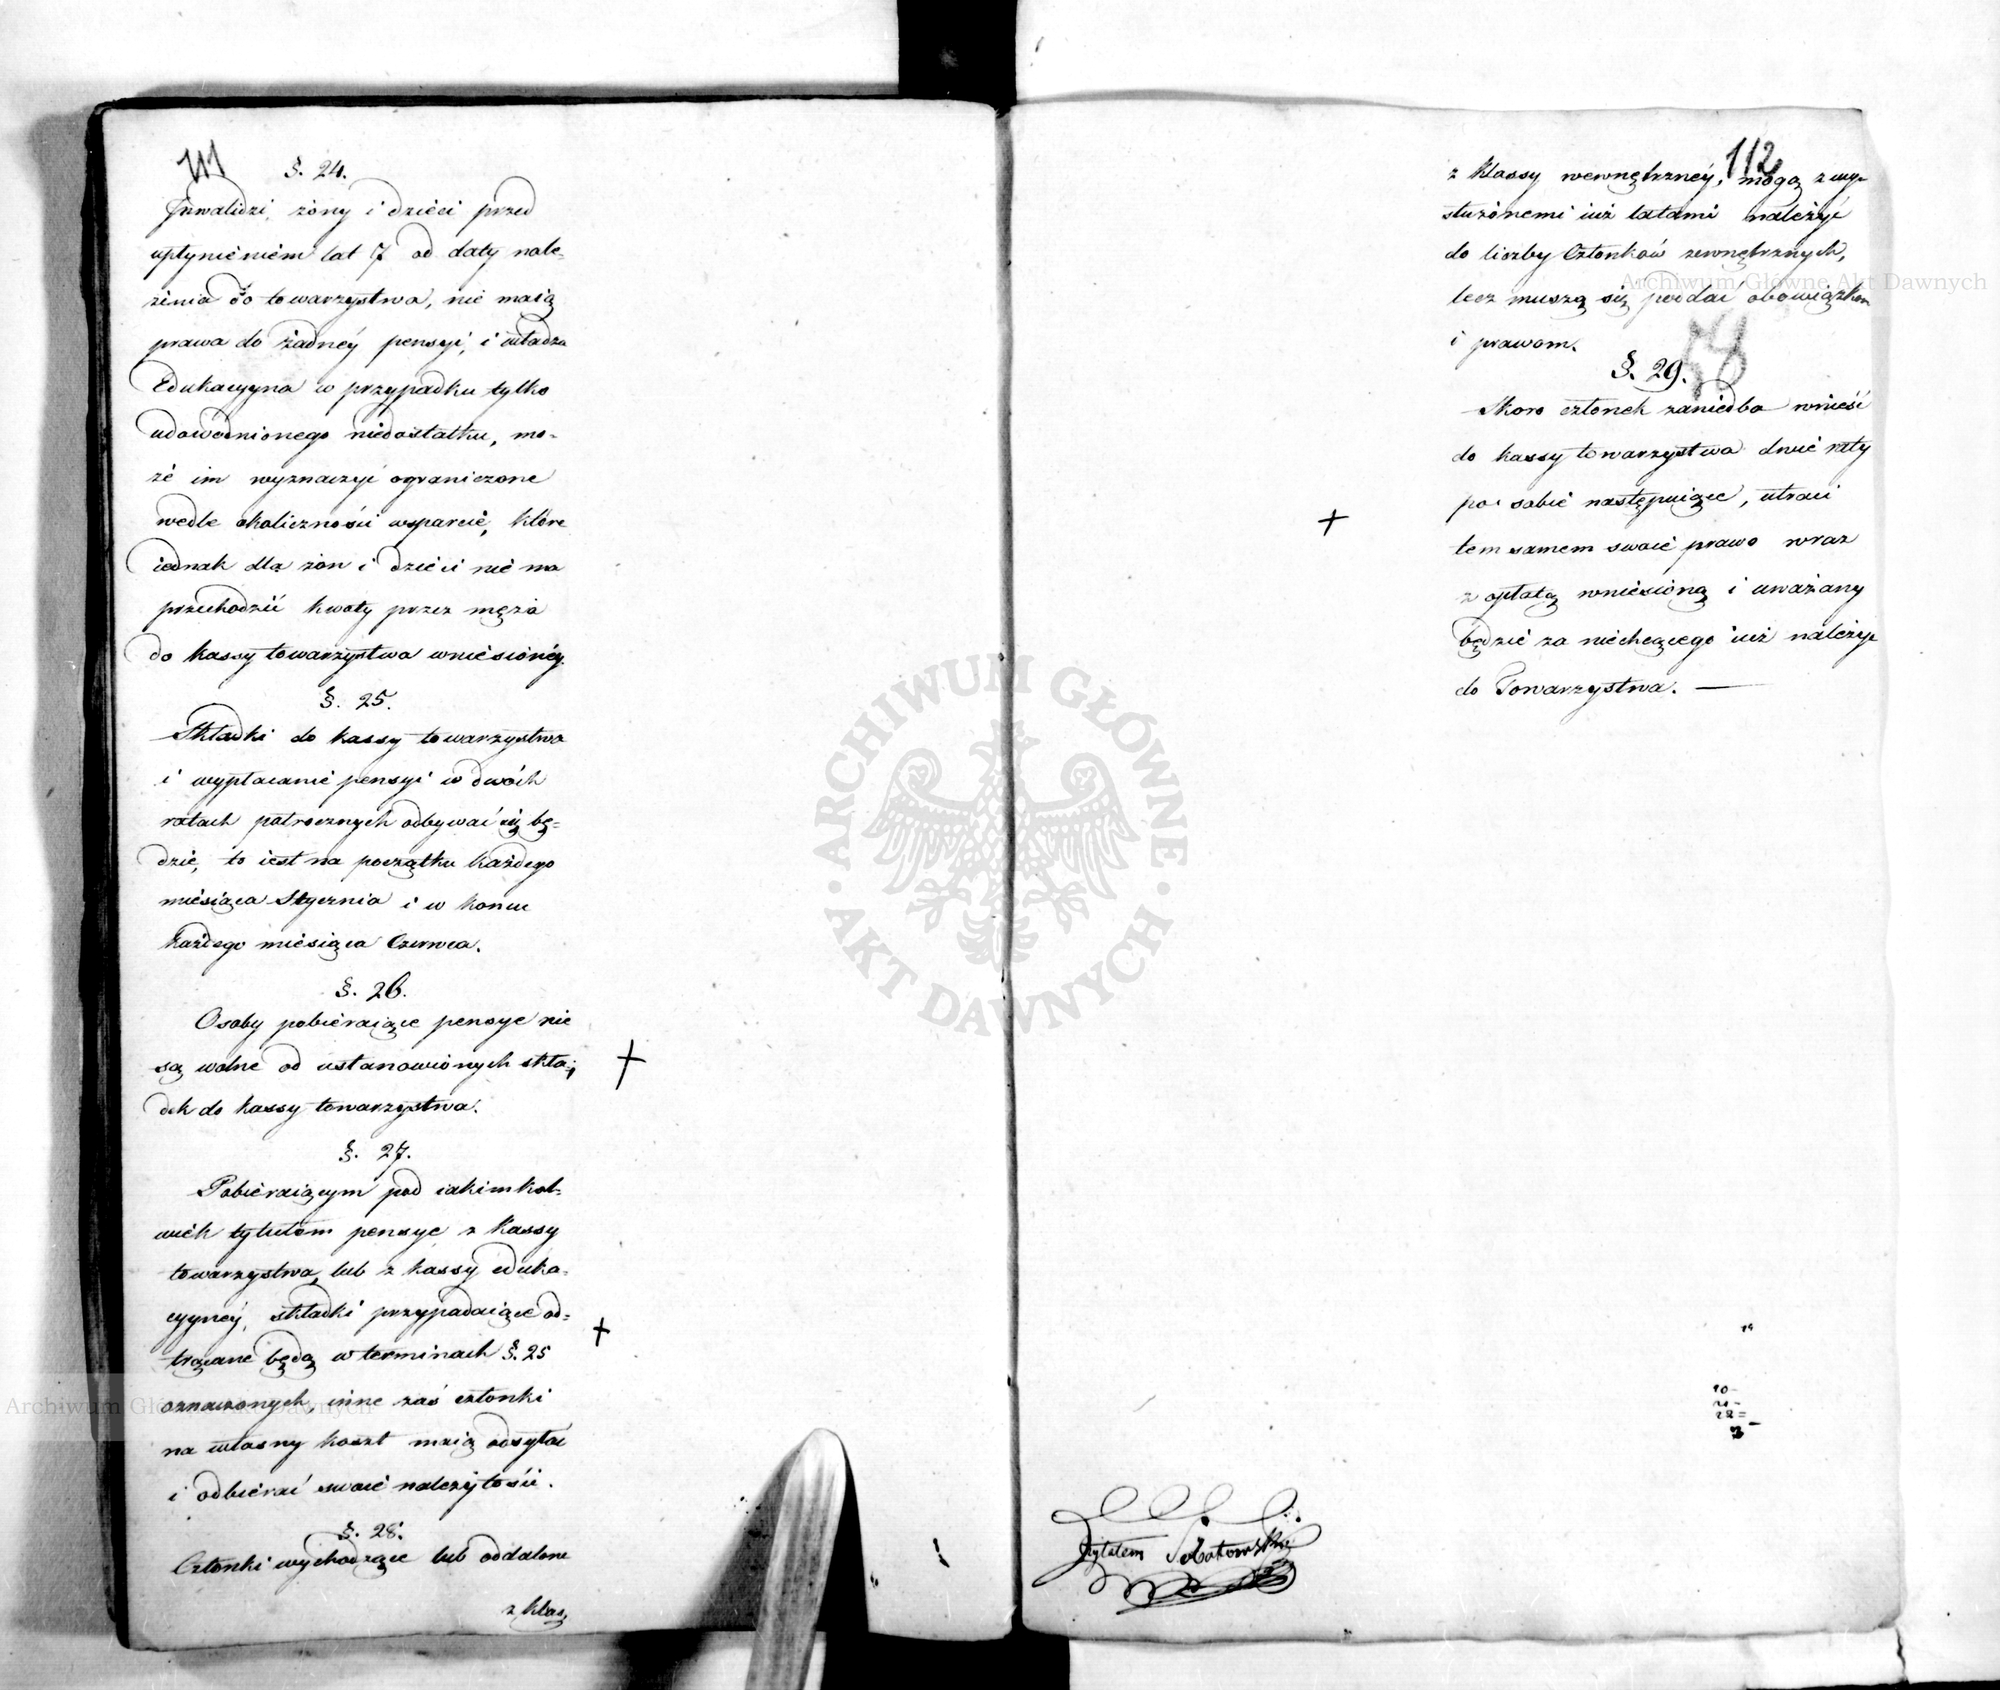 111
§. 24.
Inwalidzi, żony i dzieci przed
upłynieniem lat 7 od daty nale=
żenia do towarzystwa, nie maią
prawa do żadnéy pensyi, i władza
Edukacyyna w przypadku tylko
udowodnionego niedostatku, mo=
że im wyznaczyć ograniczone
wedle okoliczności wsparcie, które
iednak dla żon i dzieci nie ma
przechodzić kwoty przez męża
do kassy towarzystwa wniesionéy.
§. 25.
Składki do kassy towarzystwa
i wypłacanie pensyi w dwóch
ratach półrocznych odbywać się bę=
dzie, to iest na początku każdego
miesiąca Stycznia i w końcu
każdego miesiąca Czerwca.
§. 26.
Osoby pobieraiące pensye nie
są wolne od ustanowionych skła=
dek do kassy towarzystwa.
§. 27.
Pobieraiącym pod iakimkol=
wiek tytułem pensye z kassy
towarzystwa, lub z kassy eduka=
cyynéy, składki przypadaiące od=
trącane będą w terminach §. 25
oznaczonych, inne zaś członki
na własny koszt maią odsyłać
i odbierać swoie należytości.
§. 28.
Członki wychodzące lub oddalone
z klas,
112
z klassy wewnętrznéy, mogą z wy=
służonemi iuż latami należyć
do liczby Członków zewnętrznych,
lecz muszą się poddać obowiązkom
i prawom.
58
§. 29.
Skoro członek zaniedba wnieść
do kassy towarzystwa dwie raty
po sobie następuiące, utraci
tem samem swoie prawo wraz
z opłatą wniesioną i uważany
będzie za niechcącego iuż należyć
do Towarzystwa.
Czytałem
ARCHIWUM GŁÓWNE
AKT DAWNYCH
Archiwum Główne Akt Dawnych
Archiwum Główne Akt Dawnych